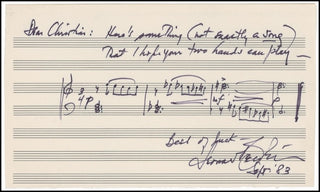 Dear Christian: Here's something (not exactly a song)
That I hope your two hands can play—
4P
mf
Best of luck—
Sept '83